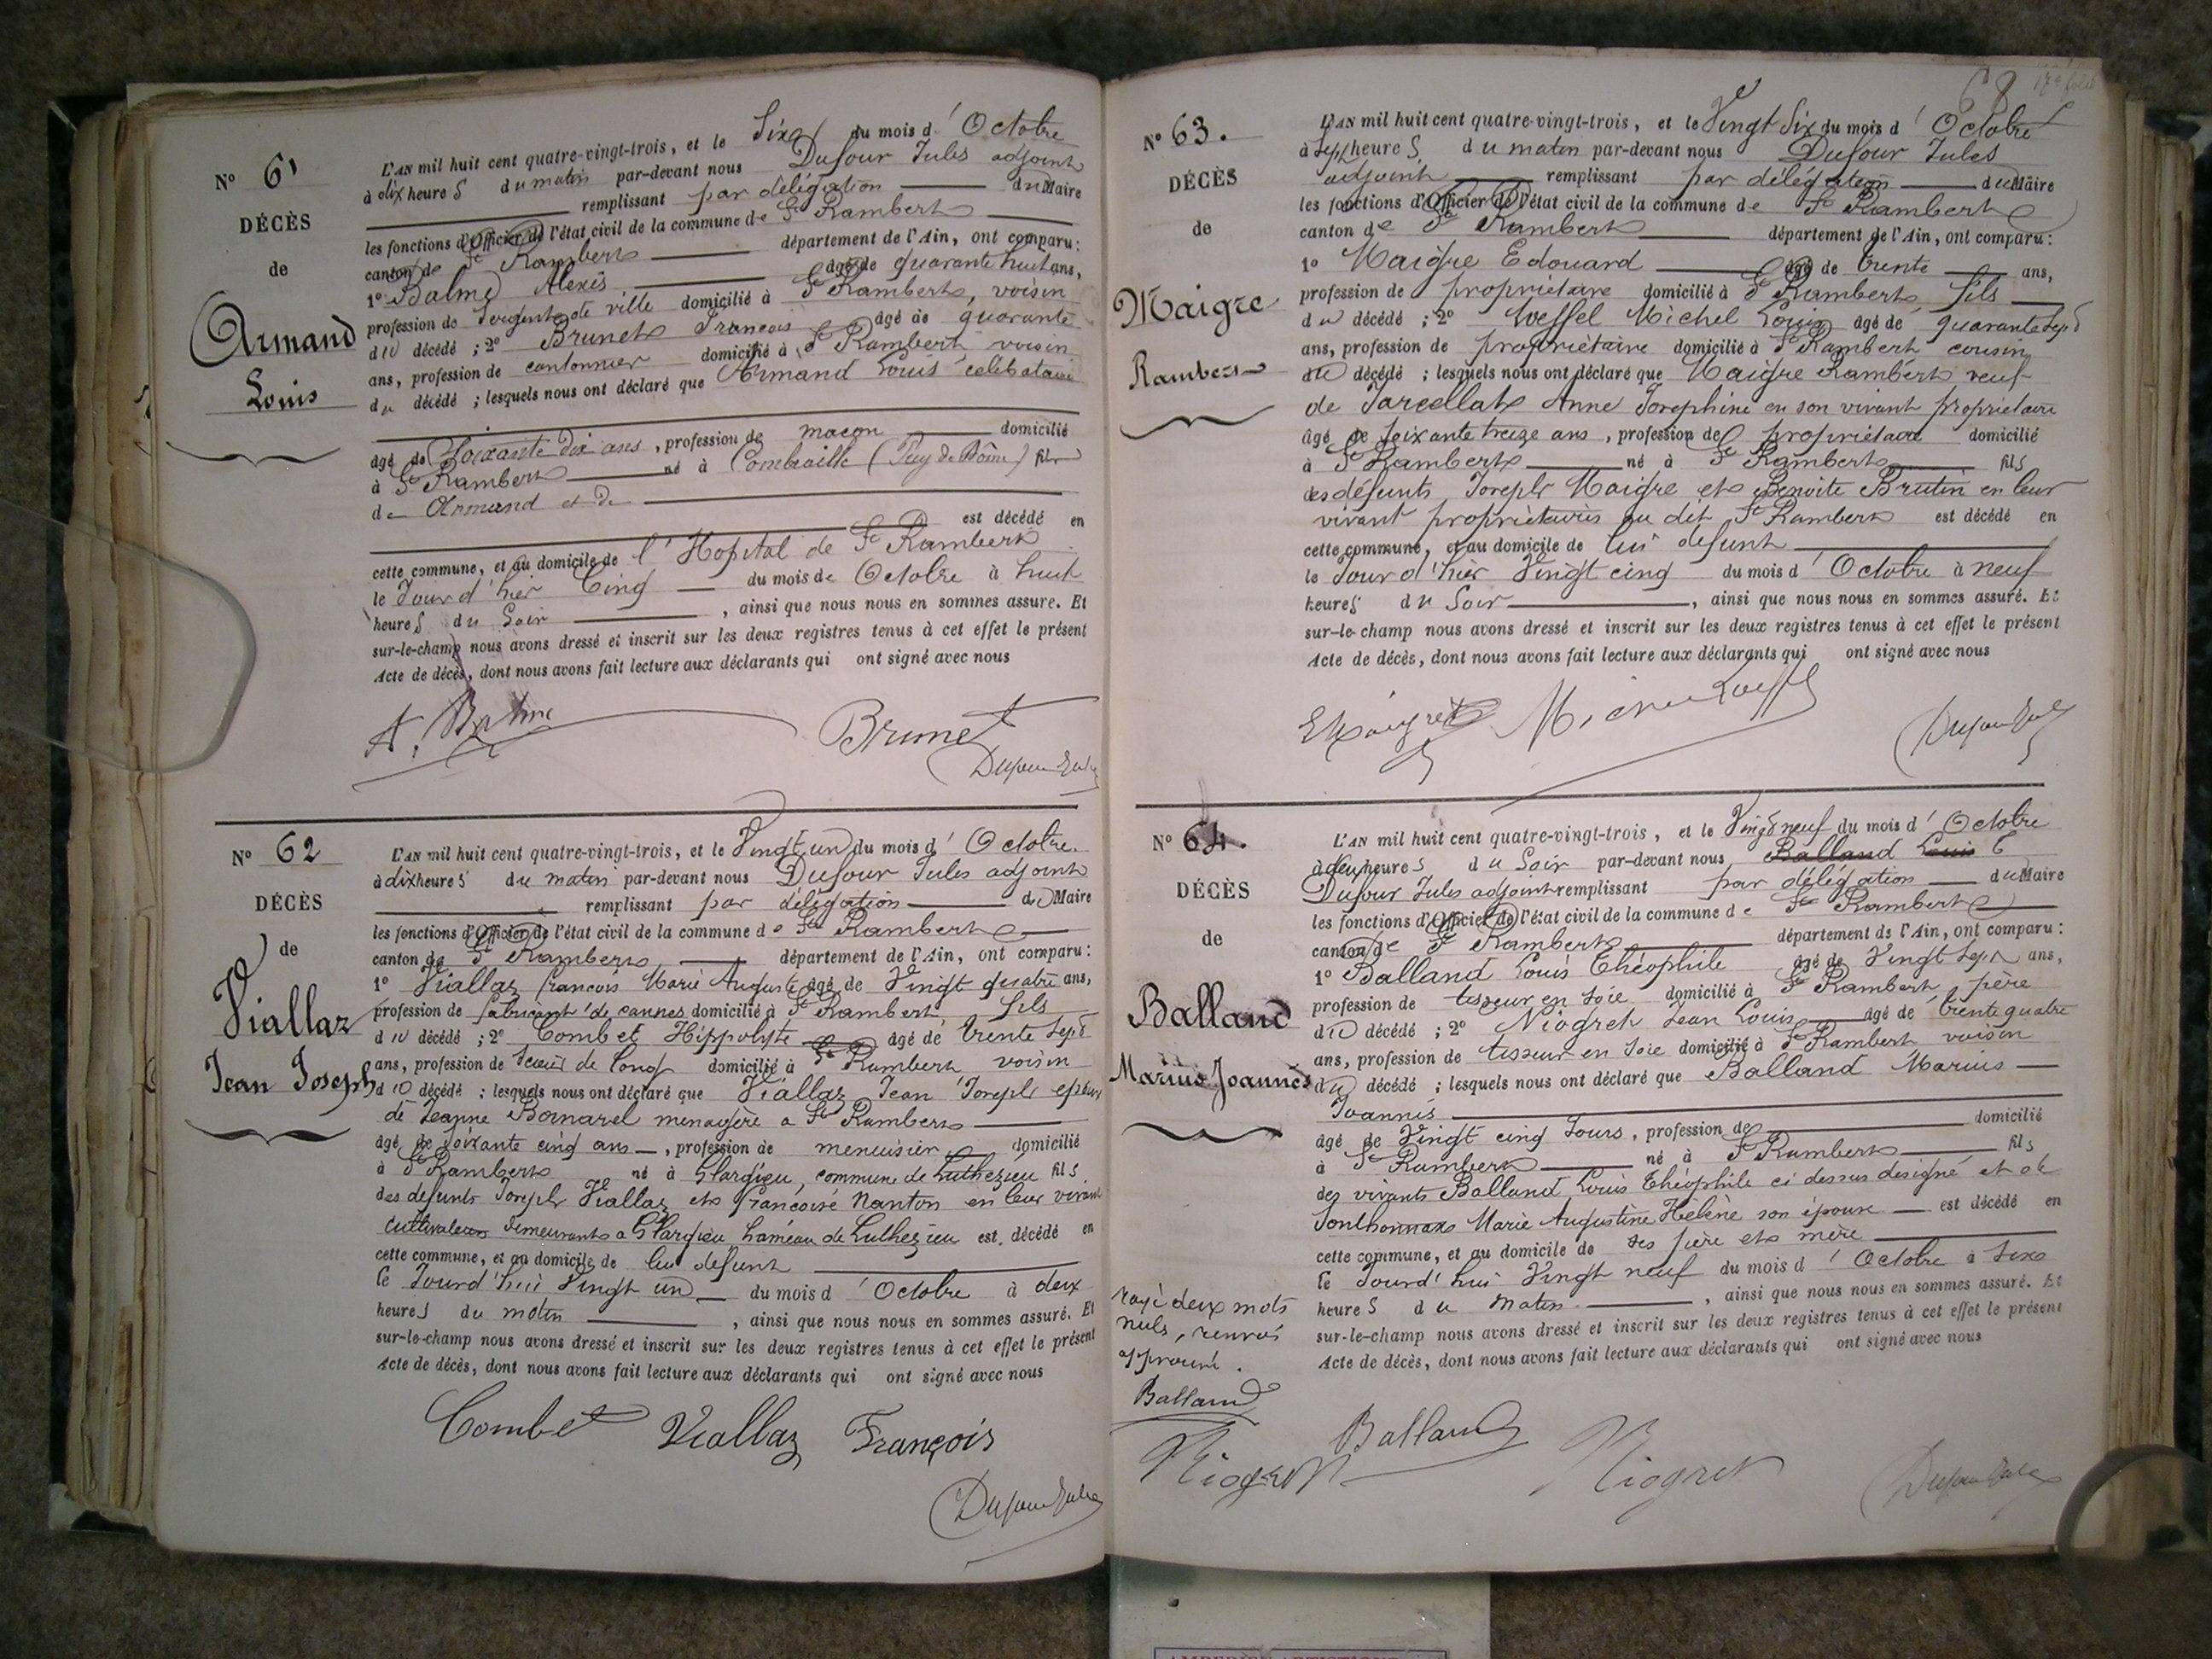 N° 61
DÉCÈS
de
Armand
Louis
L'AN mil huit cent quatre-vingt-trois, et le Six du mois d' Octobre
à dix heures du matin par-devant nous Dufour Jules adjoint
remplissant par délégation du Maire
les fonctions d'Officier de l'état civil de la commune de St Rambert
canton de St Rambert département de l'Ain, ont comparu :
1° Balme Alexis âgé de quarante huit ans,
profession de Sergent de ville domicilié à St Rambert, voisin
du décédé ; 2° Brunet François âgé de quarante
ans, profession de cantonnier domicilié à St Rambert voisin
du décédé ; lesquels nous ont déclaré que Armand Louis célibataire
âgé de Soixante dix ans, profession de maçon domicilié
à St Rambert né à Combraille (Puy de Dôme) fils
de Armand et de
est décédé en
cette commune, et au domicile de l'Hopital de St Rambert
le Jour d'hier Cinq du mois de Octobre à huit
heures du Soir, ainsi que nous nous en sommes assuré. Et
sur-le-champ nous avons dressé et inscrit sur les deux registres tenus à cet effet le présent
Acte de décès, dont nous avons fait lecture aux déclarants qui ont signé avec nous
A. Balme Brunet
Dufour Jules
N° 62
DÉCÈS
de
Viallaz
Jean Joseph
L'AN mil huit cent quatre-vingt-trois, et le Vingt un du mois d' Octobre
à dix heures du matin par-devant nous Dufour Jules adjoint
remplissant par délégation du Maire
les fonctions d'Officier de l'état civil de la commune de St Rambert
canton de St Rambert département de l'Ain, ont comparu :
1° Viallaz François Marie Auguste âgé de Vingt quatre ans,
profession de fabricant de cannes domicilié à St Rambert fils
du décédé ; 2° Combet Hippolyte âgé de trente sept
ans, profession de Scieur de long domicilié à St Rambert voisin
du décédé ; lesquels nous ont déclaré que Viallaz Jean Joseph époux
de Jeanne Bornarel menagère a St Rambert
âgé de soixante cinq ans, profession de menuisier domicilié
à St Rambert né à Glargieu, commune de Luthezieu fils
des defunts Joseph Viallaz et Françoise Nanton en leur vivant
cultivateurs demeurants a Glargieu hameau de Luthezieu est décédé en
cette commune, et au domicile de lui defunt
le Jourd'hui Vingt un du mois d' Octobre à deux
heures du matin, ainsi que nous nous en sommes assuré. Et
sur-le-champ nous avons dressé et inscrit sur les deux registres tenus à cet effet le présent
Acte de décès, dont nous avons fait lecture aux déclarants qui ont signé avec nous
Combet Viallaz François
Dufour Jules
68
N° 63.
DÉCÈS
de
Maigre
Rambert
L'AN mil huit cent quatre-vingt-trois, et le Vingt Six du mois d' Octobre
à sept heures du matin par-devant nous Dufour Jules
adjoint remplissant par délégation du Maire
les fonctions d'Officier de l'état civil de la commune de St Rambert
canton de St Rambert département de l'Ain, ont comparu :
1° Maigre Edouard âgé de trente ans,
profession de propriétaire domicilié à St Rambert fils
du décédé ; 2° Michel Louis âgé de quarante sept
ans, profession de propriétaire domicilié à St Rambert cousin
du décédé ; lesquels nous ont déclaré que Maigre Rambert, veuf
de Jarcellat Anne Josephine en son vivant propriétaire
âgé de soixante treize ans, profession de propriétaire domicilié
à St Rambert né à St Rambert fils
des défunts Joseph Maigre et Benoite Brutin en leur
vivant propriétaires au dit St Rambert est décédé en
cette commune, et au domicile de lui defunt
le Jour d'hier Vingt cinq du mois d' Octobre à neuf
heures du Soir, ainsi que nous nous en sommes assuré. Et
sur-le-champ nous avons dressé et inscrit sur les deux registres tenus à cet effet le présent
Acte de décès, dont nous avons fait lecture aux déclarants qui ont signé avec nous
E Maigre Michel
Dufour Jules
N° 64.
DÉCÈS
de
Balland
Marius Joannès
L'AN mil huit cent quatre-vingt-trois, et le Vingt neuf du mois d' Octobre
à deux heures du Soir par-devant nous Balland Louis
Dufour Jules adjoint remplissant par délégation du Maire
les fonctions d'Officier de l'état civil de la commune de St Rambert
canton de St Rambert département de l'Ain, ont comparu :
1° Balland Louis Théophile âgé de Vingt sept ans,
profession de tisseur en soie domicilié à St Rambert père
du décédé ; 2° Niogret Jean Louis âgé de trente quatre
ans, profession de tisseur en soie domicilié à St Rambert voisin
du décédé ; lesquels nous ont déclaré que Balland Marius
Joannès
âgé de Vingt cinq Jours, profession de domicilié
à St Rambert né à St Rambert fils
des vivants Balland Louis Théophile ci dessus designé et de
Sonthonnax Marie Augustine Hélène son épouse est décédé en
cette commune, et au domicile de ses père et mère
le Jourd'hui Vingt neuf du mois d' Octobre à six
heures du matin, ainsi que nous nous en sommes assuré. Et
sur-le-champ nous avons dressé et inscrit sur les deux registres tenus à cet effet le présent
Acte de décès, dont nous avons fait lecture aux déclarants qui ont signé avec nous
rayé deux mots
nuls, renvoi
approuvé.
Balland
Niogret
Balland Niogret Dufour Jules